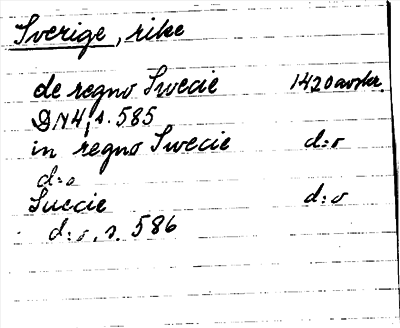 Sverige, rike
de regno Swecie 1420 avskr.
DN4, s. 585
in regno Swecie d:o
d:o
Suecie d:o
d:o, s. 586